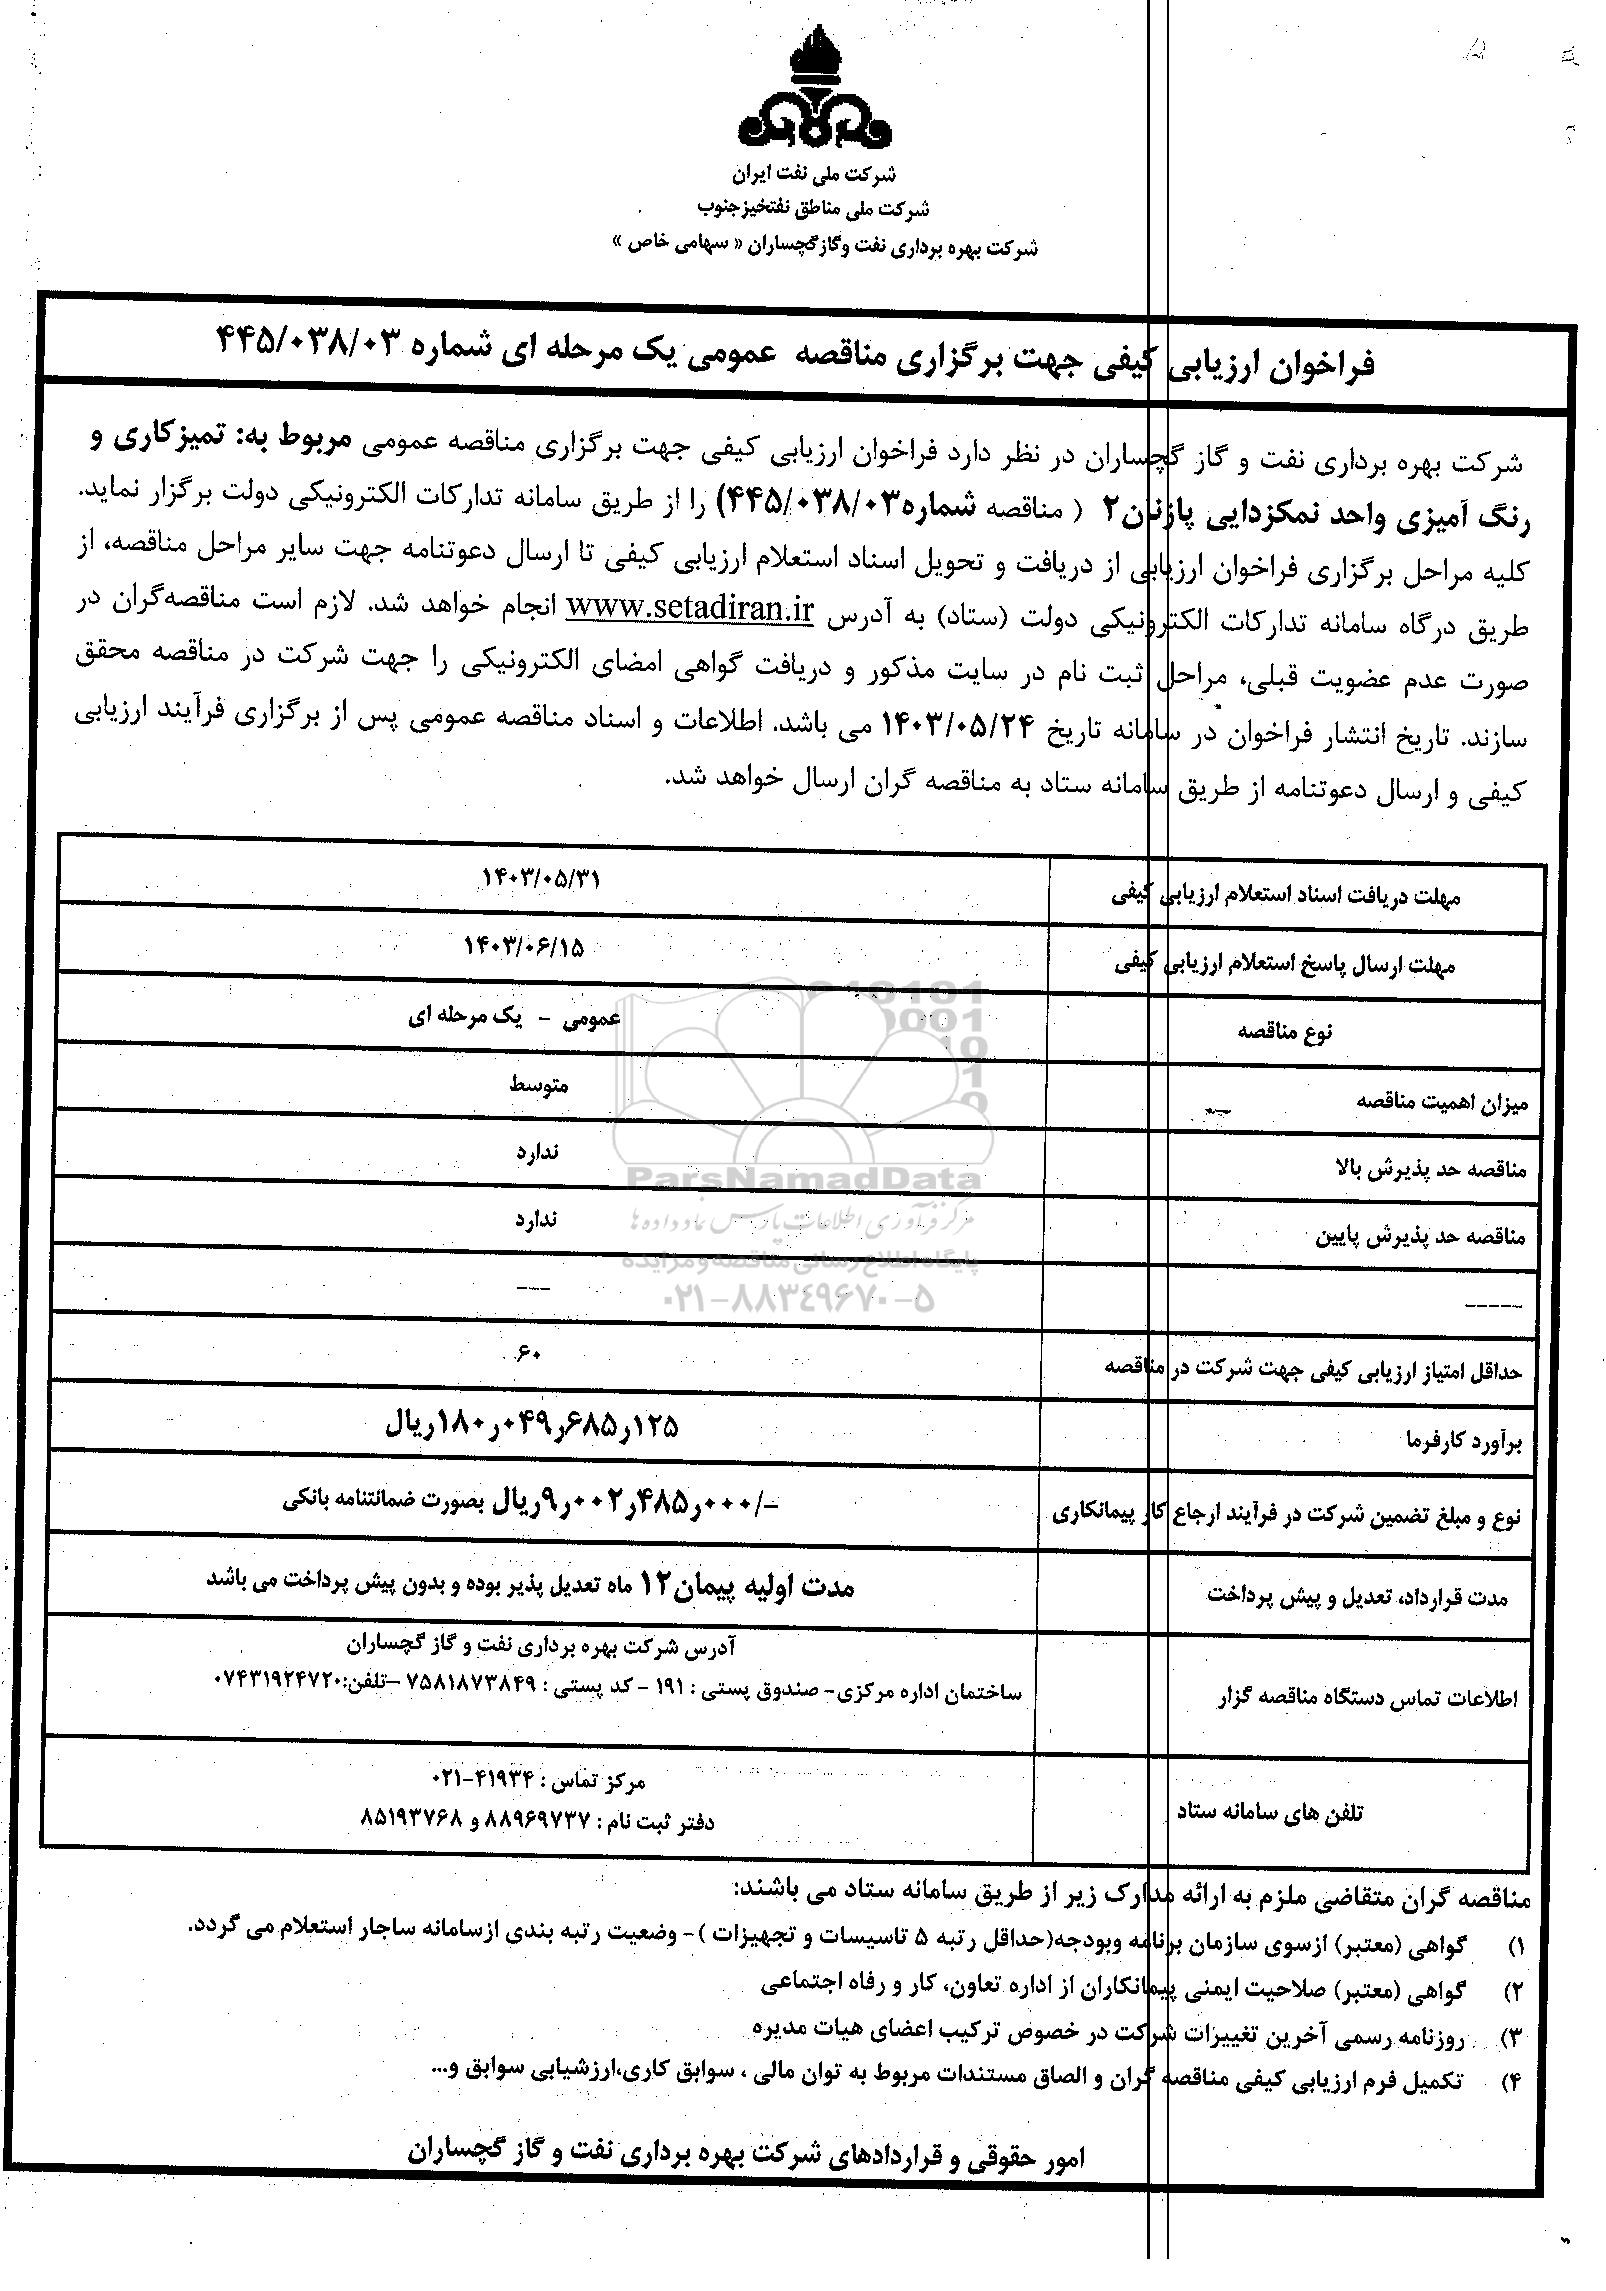 شرکت ملی نفت ایران
شرکت ملی مناطق نفتخیزجنوب
شرکت بهره برداری نفت وگازگچساران « سهامی خاص »
فراخوان ارزیابی کیفی جهت برگزاری مناقصه عمومی یک مرحله ای شماره ۴۴۵/۰۳۸/۰۳
شرکت بهره برداری نفت و گاز گچساران در نظر دارد فراخوان ارزیابی کیفی جهت برگزاری مناقصه عمومی مربوط به: تمیزکاری و
رنگ آمیزی واحد نمکزدایی پازنان۲ ( مناقصه شماره۴۴۵/۰۳۸/۰۳) را از طریق سامانه تدارکات الکترونیکی دولت برگزار نماید.
کلیه مراحل برگزاری فراخوان ارزیابی از دریافت و تحویل اسناد استعلام ارزیابی کیفی تا ارسال دعوتنامه جهت سایر مراحل مناقصه، از
طریق درگاه سامانه تدارکات الکترونیکی دولت (ستاد) به آدرس www.setadiran.ir انجام خواهد شد. لازم است مناقصه‌گران در
صورت عدم عضویت قبلی، مراحل ثبت نام در سایت مذکور و دریافت گواهی امضای الکترونیکی را جهت شرکت در مناقصه محقق
سازند. تاریخ انتشار فراخوان در سامانه تاریخ ۱۴۰۳/۰۵/۲۴ می باشد. اطلاعات و اسناد مناقصه عمومی پس از برگزاری فرآیند ارزیابی
کیفی و ارسال دعوتنامه از طریق سامانه ستاد به مناقصه گران ارسال خواهد شد.
مهلت دریافت اسناد استعلام ارزیابی کیفی ۱۴۰۳/۰۵/۳۱
مهلت ارسال پاسخ استعلام ارزیابی کیفی ۱۴۰۳/۰۶/۱۵
نوع مناقصه عمومی - یک مرحله ای
میزان اهمیت مناقصه متوسط
مناقصه حد پذیرش بالا ندارد
مناقصه حد پذیرش پایین ندارد
----- ---
حداقل امتیاز ارزیابی کیفی جهت شرکت در مناقصه ۶۰
برآورد کارفرما ۱۸۰ر۰۴۹ر۶۸۵ر۱۲۵ریال
نوع و مبلغ تضمین شرکت در فرآیند ارجاع کار پیمانکاری -/۹ر۰۰۲ر۴۸۵ر۰۰۰ریال بصورت ضمانتنامه بانکی
مدت قرارداد، تعدیل و پیش پرداخت مدت اولیه پیمان۱۲ ماه تعدیل پذیر بوده و بدون پیش پرداخت می باشد
آدرس شرکت بهره برداری نفت و گاز گچساران
اطلاعات تماس دستگاه مناقصه گزار ساختمان اداره مرکزی- صندوق پستی : ۱۹۱ - کد پستی : ۷۵۸۱۸۷۳۸۴۹ –تلفن:۰۷۴۳۱۹۲۴۷۲۰
مرکز تماس : ۴۱۹۳۴-۰۲۱
تلفن های سامانه ستاد دفتر ثبت نام : ۸۸۹۶۹۷۳۷ و ۸۵۱۹۳۷۶۸
مناقصه گران متقاضی ملزم به ارائه مدارک زیر از طریق سامانه ستاد می باشند:
۱) گواهی (معتبر) ازسوی سازمان برنامه وبودجه(حداقل رتبه ۵ تاسیسات و تجهیزات )- وضعیت رتبه بندی ازسامانه ساجار استعلام می گردد.
۲) گواهی (معتبر) صلاحیت ایمنی پیمانکاران از اداره تعاون، کار و رفاه اجتماعی
۳) روزنامه رسمی آخرین تغییرات شرکت در خصوص ترکیب اعضای هیات مدیره
۴) تکمیل فرم ارزیابی کیفی مناقصه گران و الصاق مستندات مربوط به توان مالی ، سوابق کاری،ارزشیابی سوابق و...
امور حقوقی و قراردادهای شرکت بهره برداری نفت و گاز گچساران
ParsNamadData
مرکز فرآوری اطلاعات پارس نماد داده ها
پایگاه اطلاع رسانی مناقصه و مزایده
۰۲۱-۸۸۳۴۹۶۷۰-۵